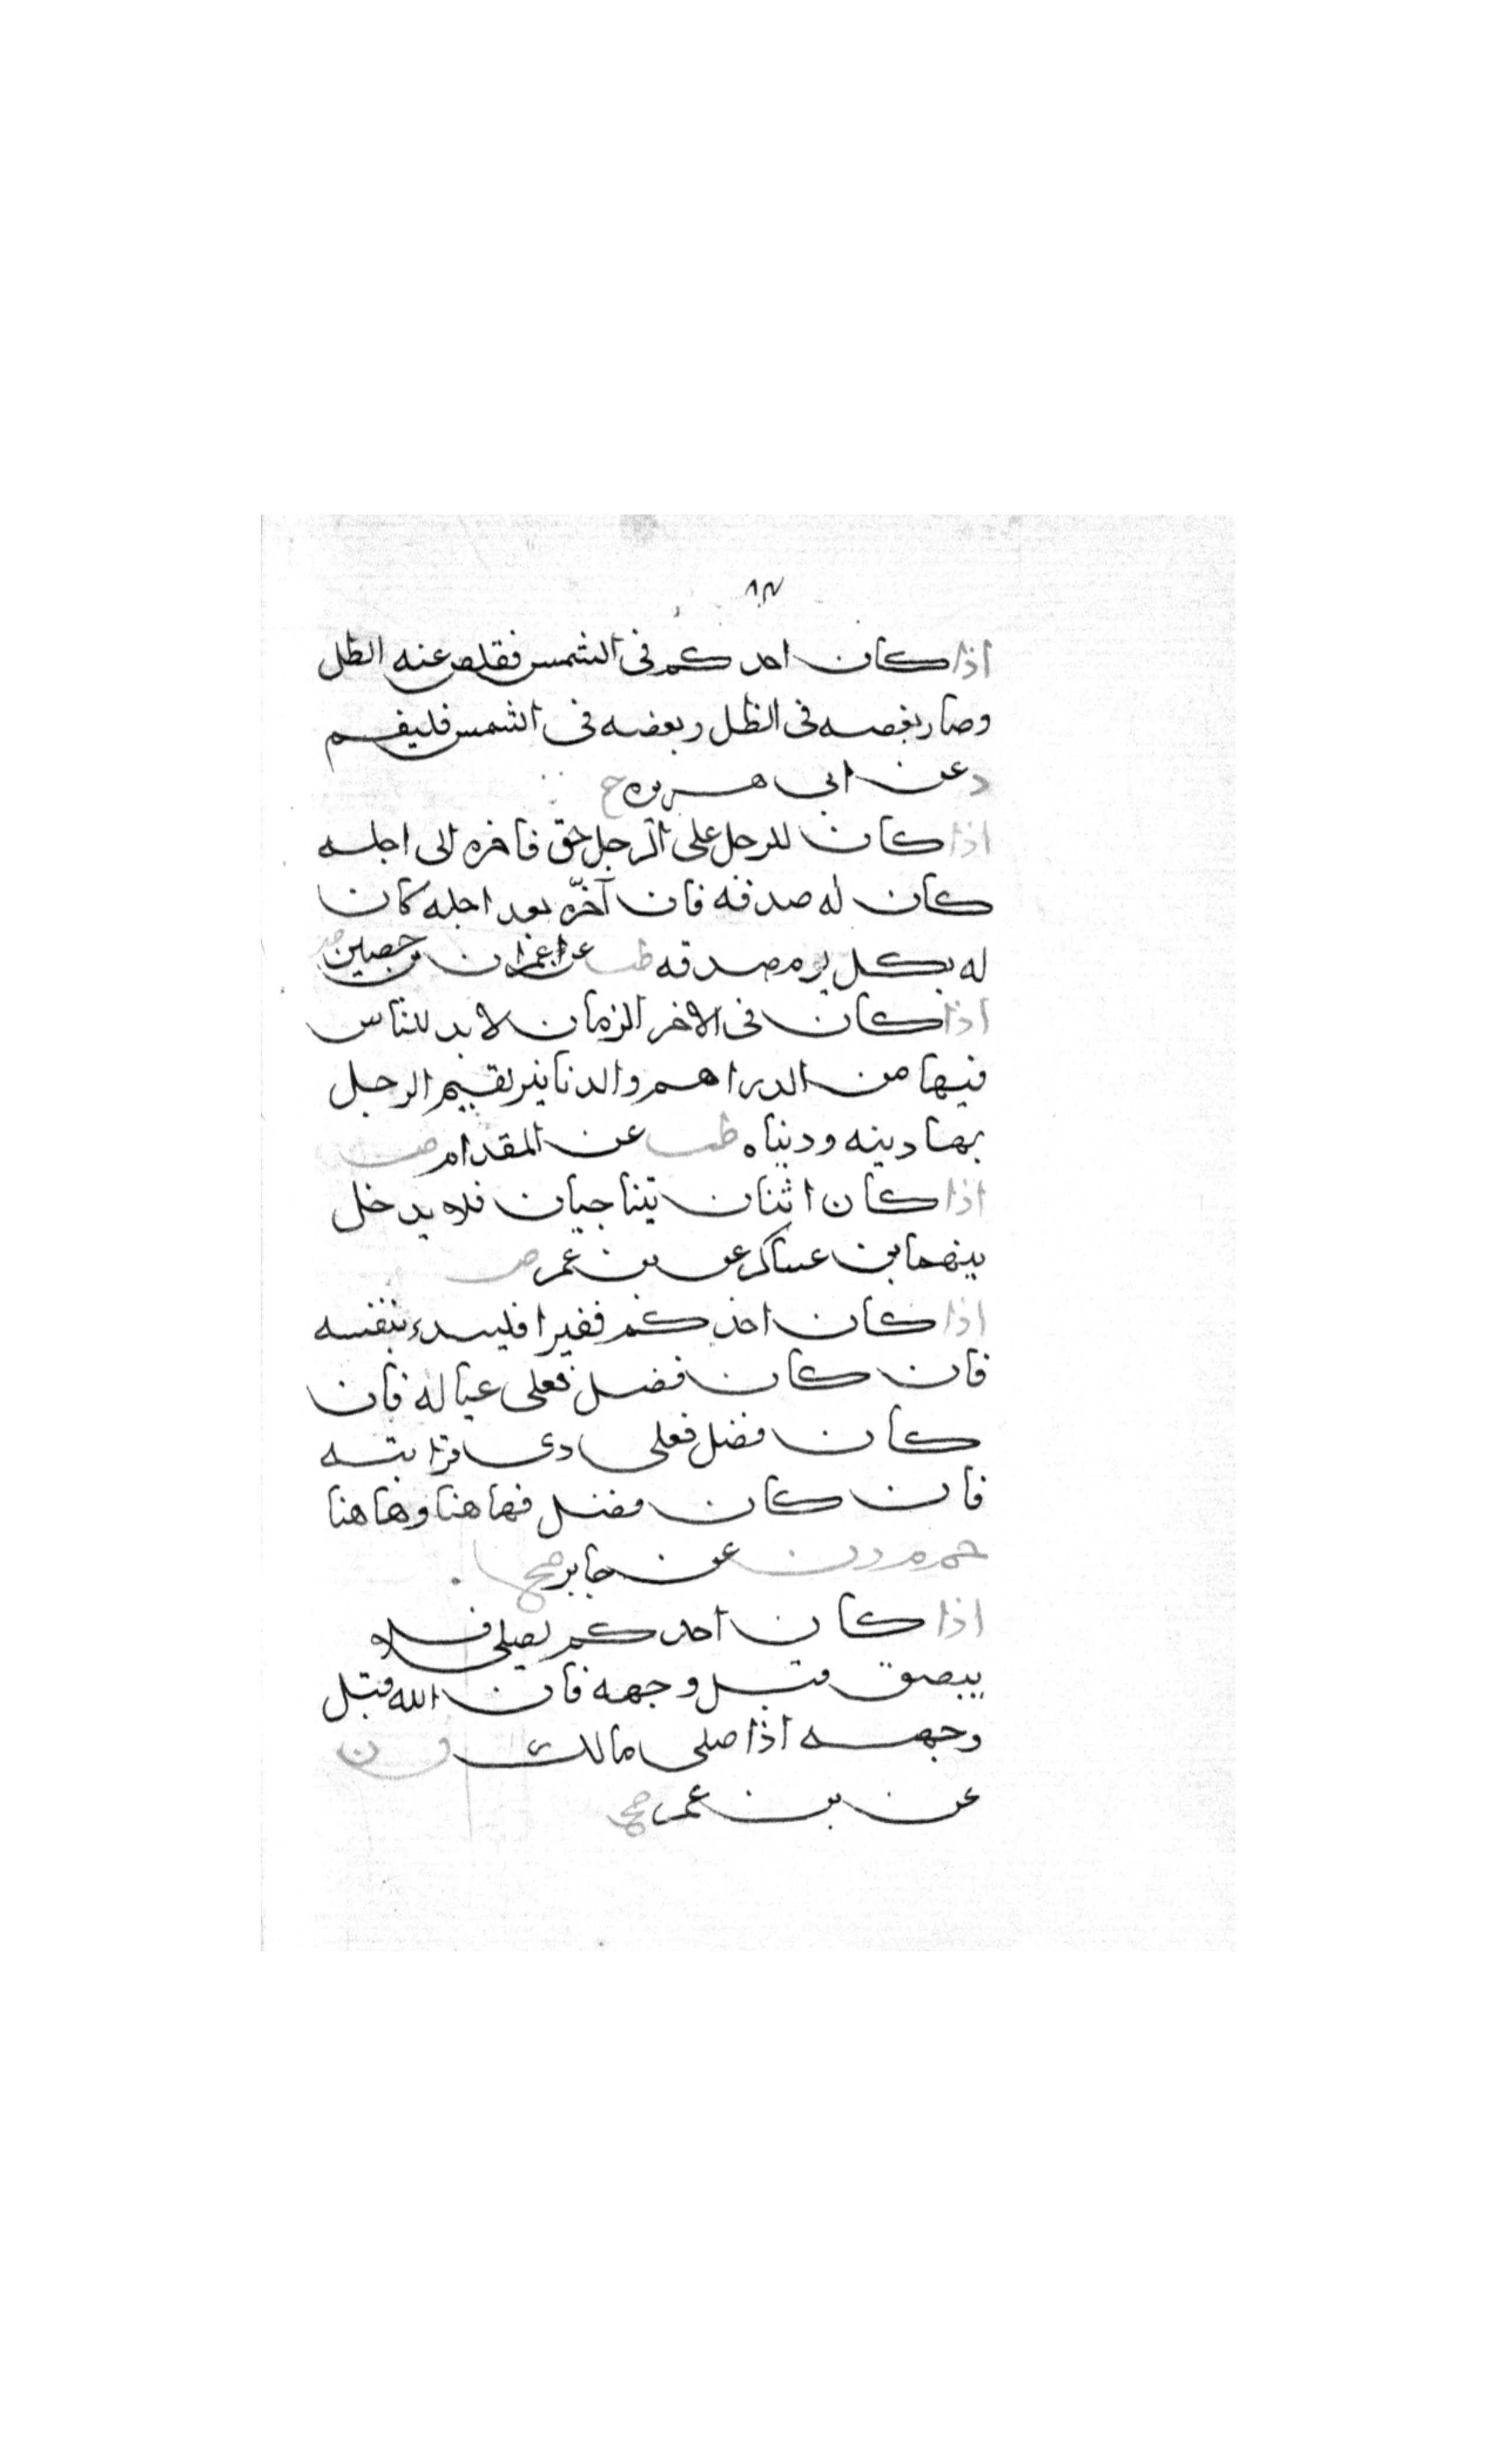 اذا كان احدكم فى الشمس فقلص عنه الظل
وصار بعضه فى الظل وبعضه فى الشمس فليقم
د عن ابى هريره ح
اذا كان للرجل على الرجل حق فاخره الى اجله
كان له صدقه فان آخّره بعد اجله كان
له بكل يوم صدقه طب عن عمران بن حصين
اذا كان فى الاخر الزمان لا بد للناس
فيها من الدراهم والدنانير يقيم الرجل
بها دينه ودنياه طب عن المقدام ض
اذا كان اثنان يتناجيان فلا يدخل
بينهما بن عساكر عن بن عمر ض
اذا كان احدكم فقيرا فليبدء بنفسه
فان كان فضل فعلى عياله فان
كان فضل فعلى ذى قرابته
فان كان فضل فهاهنا وهاهنا
حم م د ن عن جابر صح
اذا كان احدكم يصلى فلا
يبصق قبل وجهه فان الله قبل
وجهه اذا صلى مالك ق ن
عن بن عمر صح